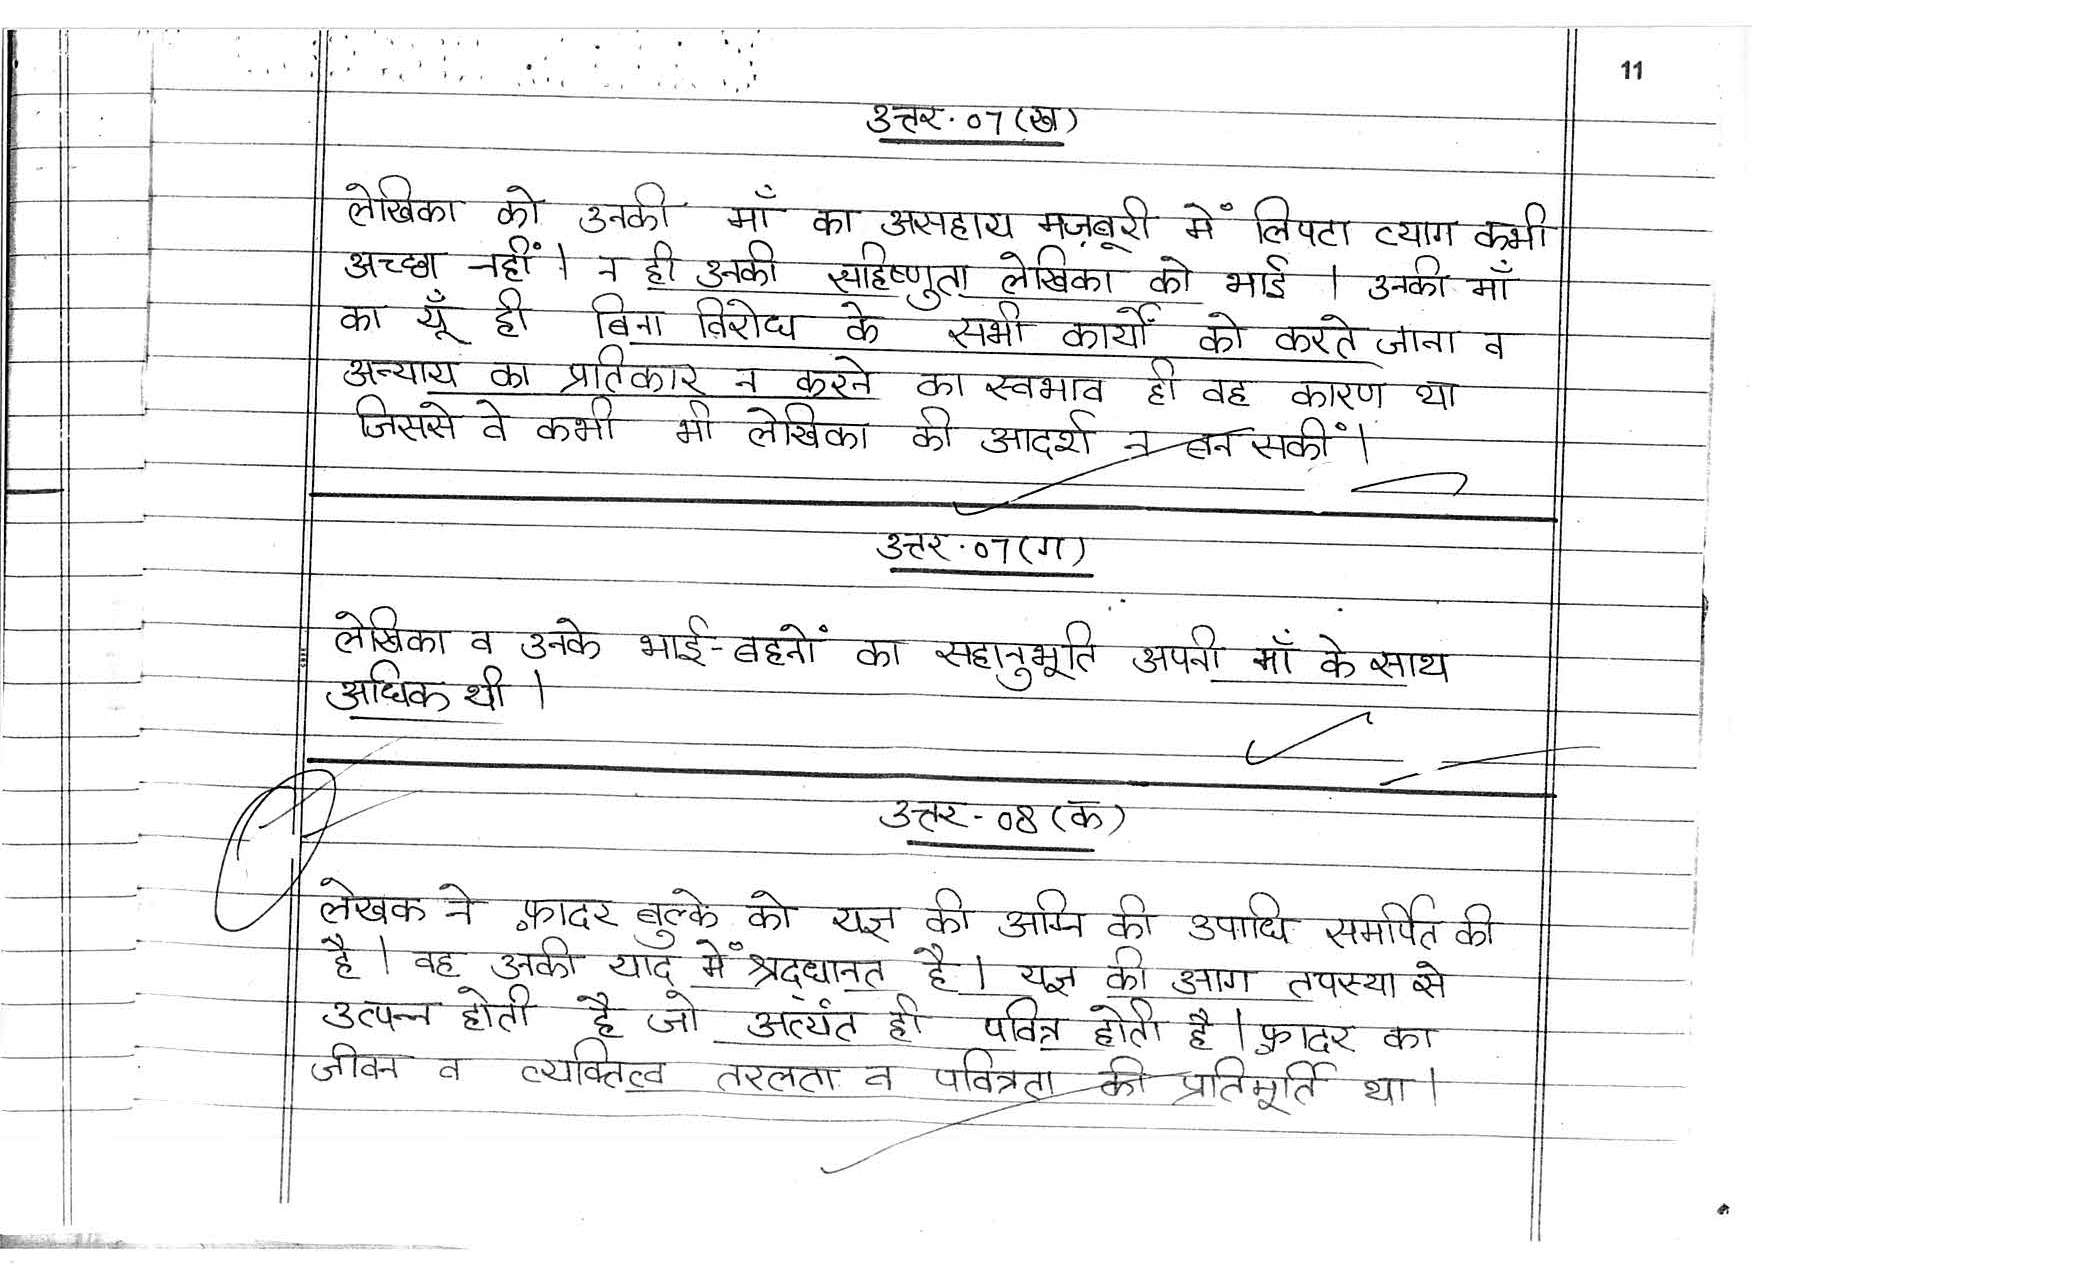 11
उत्तर. 07 (ख)
लेखिका को उनकी माँ का असहाय मज़बूरी में लिपटा त्याग कभी
अच्छा नहीं। न ही उनकी सहिष्णुता लेखिका को भाई। उनकी माँ
का यूँ ही बिना विरोध के सभी कार्यों को करते जाना व
अन्याय का प्रतिकार न करने का स्वभाव ही वह कारण था
जिससे वे कभी भी लेखिका की आदर्श न बन सकीं।
उत्तर. 07 (ग)
लेखिका व उनके भाई-बहनों का सहानुभूति अपनी माँ के साथ
अधिक थी।
उत्तर- 08 (क)
लेखक ने फ़ादर बुल्के को यज्ञ की अग्नि की उपाधि समर्पित की
है। वह उनकी याद में श्रद्धानत है। यज्ञ की आग तपस्या से
उत्पन्न होती है जो अत्यंत ही पवित्र होती है। फ़ादर का
जीवन व व्यक्तित्व तरलता व पवित्रता की प्रतिमूर्ति था।